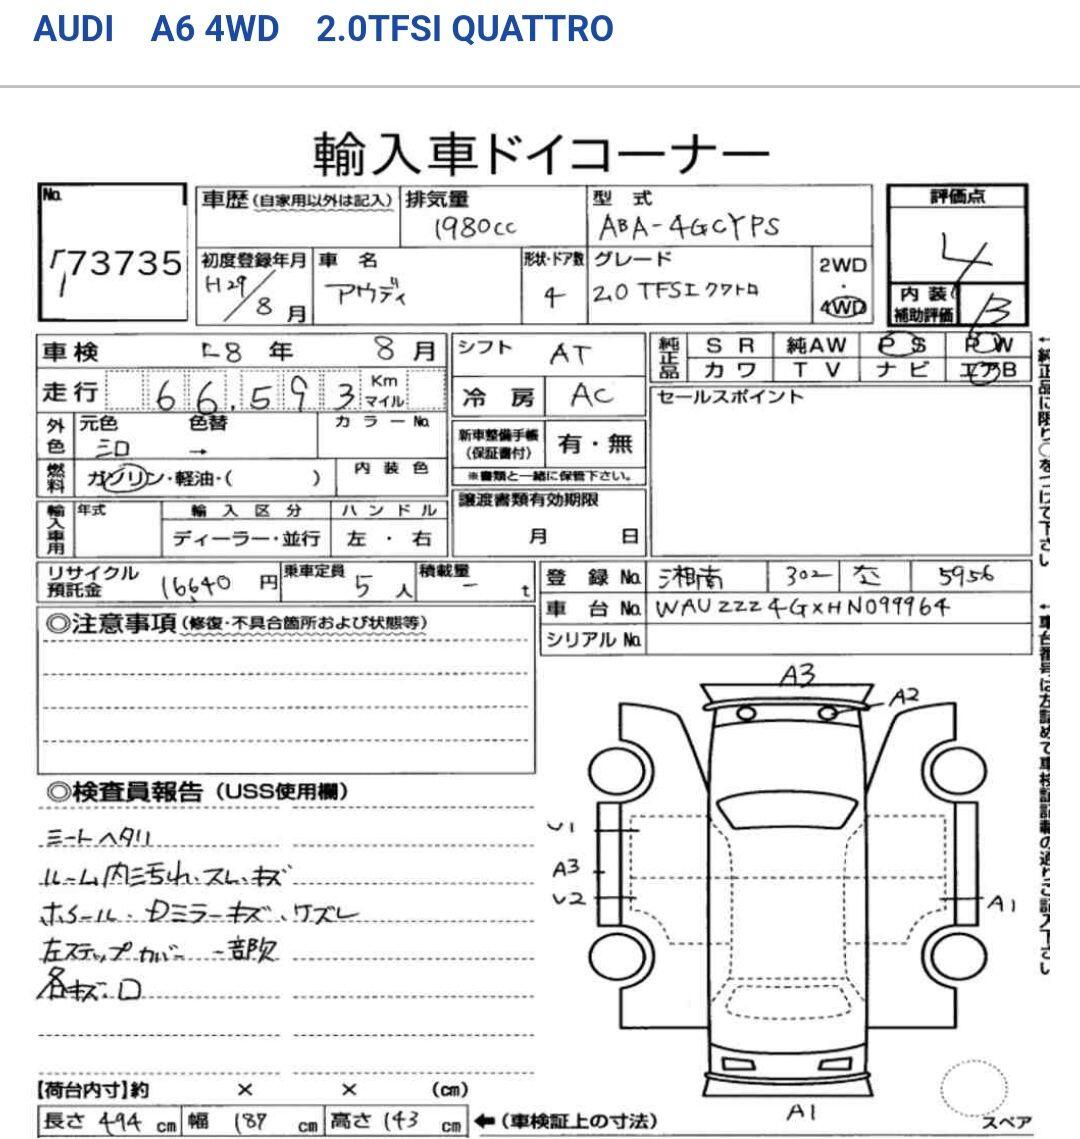 AUDI A6 4WD 2.0TFSI QUATTRO
輸入車ドイコーナー
No.
173735
車歴(自家用以外は記入)
排気量
1980cc
型 式
ABA-4GCYPS
評価点
4
初度登録年月
H29/8月
車 名
アウディ
形状・ドア数
4
グレード
2.0 TFSIクワトロ
2WD
・
4WD
内 装
補助評価
B
車検 R8年 8月
走行 66,593 Km
マイル
シフト AT
冷 房 AC
純正品
SR 純AW PS PW
カワ TV ナビ エアB
外色
元色 色替
→
カラーNo.
燃料
ガソリン・軽油・( )
内装色
新車整備手帳
(保証書付)
有・無
※書類と一緒に保管下さい。
セールスポイント
輸入車用
年式
輸入区分
ディーラー・並行
ハンドル
左・右
譲渡書類有効期限
月 日
リサイクル
預託金
16640円
乗車定員
5人
積載量
- t
登 録 No. 湘南 302 5956
車 台 No. WAUZZZ4GXHN099964
シリアル No.
←純正品に限り○をつけて下さい
←車台番号は左詰めで車検証記載の通りご記入下さい
◎注意事項(修復・不具合箇所および状態等)
◎検査員報告(USS使用欄)
シートヘタリ
ルーム内ニ汚れ、スレ、キズ
ホイール・Dミラーキズ、ケズレ
左ステップカバー一部欠
各キズ・凹
A3
A2
U1
A3
U2
A1
A1
スペア
【荷台内寸】約 × × (cm)
長さ 494 cm 幅 187 cm 高さ 143 cm ←(車検証上の寸法)